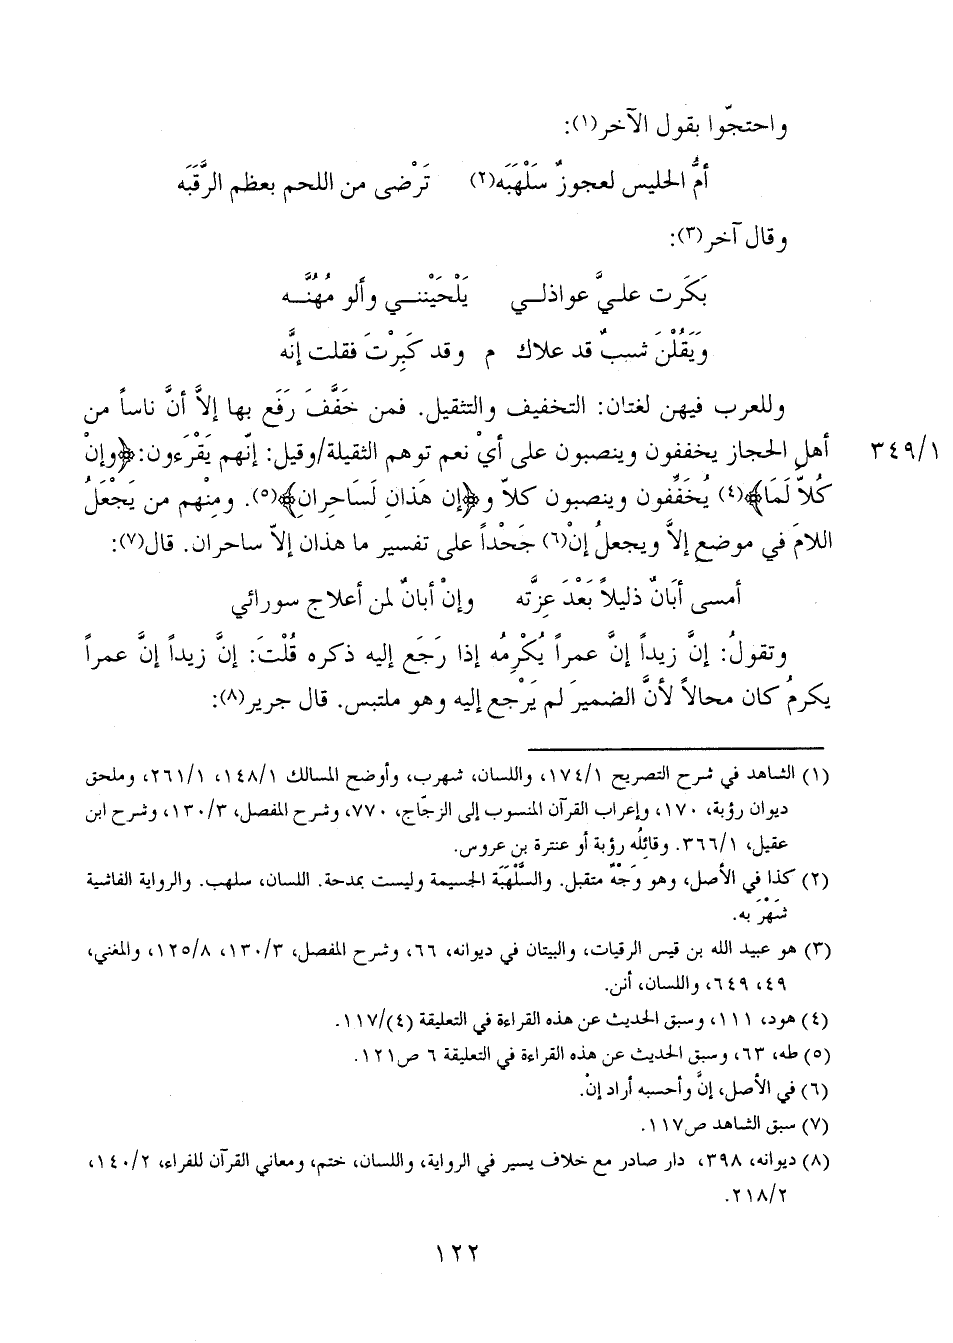 واحتجّوا بقول الآخر(١):
أمُّ الحليس لعجوزٌ سَلْهَبَه(٢) تَرْضى من اللحم بعظم الرَّقَبَه
وقال آخر(٣):
بَكَرَت عليَّ عواذلي يَلْحَيْنني وألومُهُنَّه
وَيَقُلْنَ شيبٌ قد علاك م وقد كَبِرْتَ فقلت إنَّه
وللعرب فيهن لغتان: التخفيف والتثقيل. فمن خَفَّفَ رَفَع بها إلاَّ أنَّ ناساً من
٣٤٩/١ أهلِ الحجاز يخففون وينصبون على أيْ نعم توهم الثقيلة/وقيل: إنّهم يَقْرَءون: ﴿وإنْ
كُلاّ لَمَا﴾(٤) يُخَفِّفون وينصبون كلاّ و﴿إن هَذانِ لَسَاحِرانِ﴾(٥). ومِنْهم من يَجْعَلُ
اللامَ في موضع إلاَّ ويجعلُ إنْ(٦) جَحْداً على تفسير ما هذان إلاّ ساحران. قال(٧):
أمسى أبَانٌ ذليلاً بَعْدَ عِزَّته وإنْ أبانٌ لمن أعلاج سورائي
وتقولُ: إنَّ زيداً إنَّ عمراً يُكْرِمُه إذا رَجَع إليه ذكره قُلْتَ: إنَّ زيداً إنَّ عمراً
يكرمُ كان محالاً لأنَّ الضميرَ لم يَرْجع إليه وهو ملتبس. قال جرير(٨):
(١) الشاهد في شرح التصريح ١٧٤/١، واللسان، شهرب، وأوضح المسالك ١٤٨/١، ٢٦١/١، وملحق
ديوان رؤبة، ١٧٠، وإعراب القرآن المنسوب إلى الزجّاج، ٧٧٠، وشرح المفصل، ١٣٠/٣، وشرح ابن
عقيل، ٣٦٦/١. وقائِلُه رؤبة أو عنترة بن عروس.
(٢) كذا في الأصل، وهو وَجْهٌ متقبل. والسَّلْهَبَة الجسيمة وليست بمدحة. اللسان، سلهب. والرواية الفاشية
شَهْرَبه.
(٣) هو عبيد الله بن قيس الرقيات، والبيتان في ديوانه، ٦٦، وشرح المفصل، ١٣٠/٣، ١٢٥/٨، والمغني،
٤٩، ٦٤٩، واللسان، أنن.
(٤) هود، ١١١، وسبق الحديث عن هذه القراءة في التعليقة (٤)/١١٧.
(٥) طه، ٦٣، وسبق الحديث عن هذه القراءة في التعليقة ٦ ص١٢١.
(٦) في الأصل، إنَّ وأحسبه أراد إنْ.
(٧) سبق الشاهد ص١١٧.
(٨) ديوانه، ٣٩٨، دار صادر مع خلاف يسير في الرواية، واللسان، ختم، ومعاني القرآن للفراء، ١٤٠/٢،
٢١٨/٢.
١٢٢